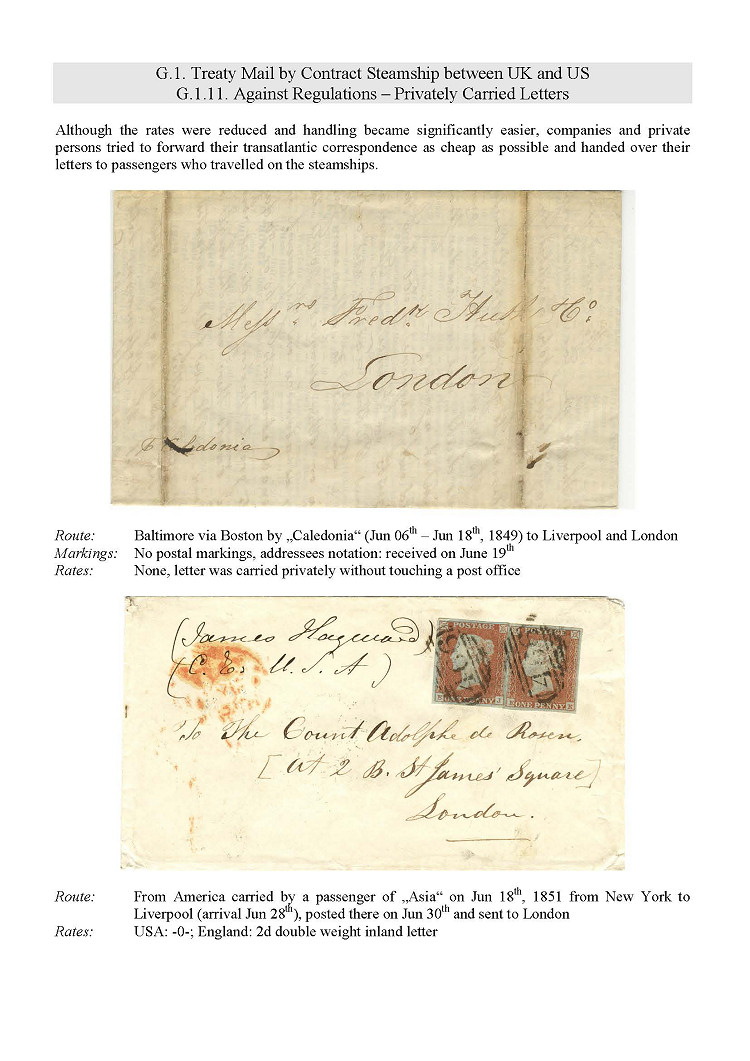 G.1. Treaty Mail by Contract Steamship between UK and US
G.1.11. Against Regulations – Privately Carried Letters
Although the rates were reduced and handling became significantly easier, companies and private
persons tried to forward their transatlantic correspondence as cheap as possible and handed over their
letters to passengers who travelled on the steamships.
Messrs Fredk Huth & Co:
London
Caledonia
Route: Baltimore via Boston by „Caledonia“ (Jun 06th – Jun 18th, 1849) to Liverpool and London
Markings: No postal markings, addressees notation: received on June 19th
Rates: None, letter was carried privately without touching a post office
(James Hayward)
(C. E. U. S. A)
POSTAGE
ONE PENNY
ONE PENNY
To The Count Adolphe de Rosen.
[At 2 B. St James' Square]
London.
Route: From America carried by a passenger of „Asia“ on Jun 18th, 1851 from New York to
Liverpool (arrival Jun 28th), posted there on Jun 30th and sent to London
Rates: USA: -0-; England: 2d double weight inland letter